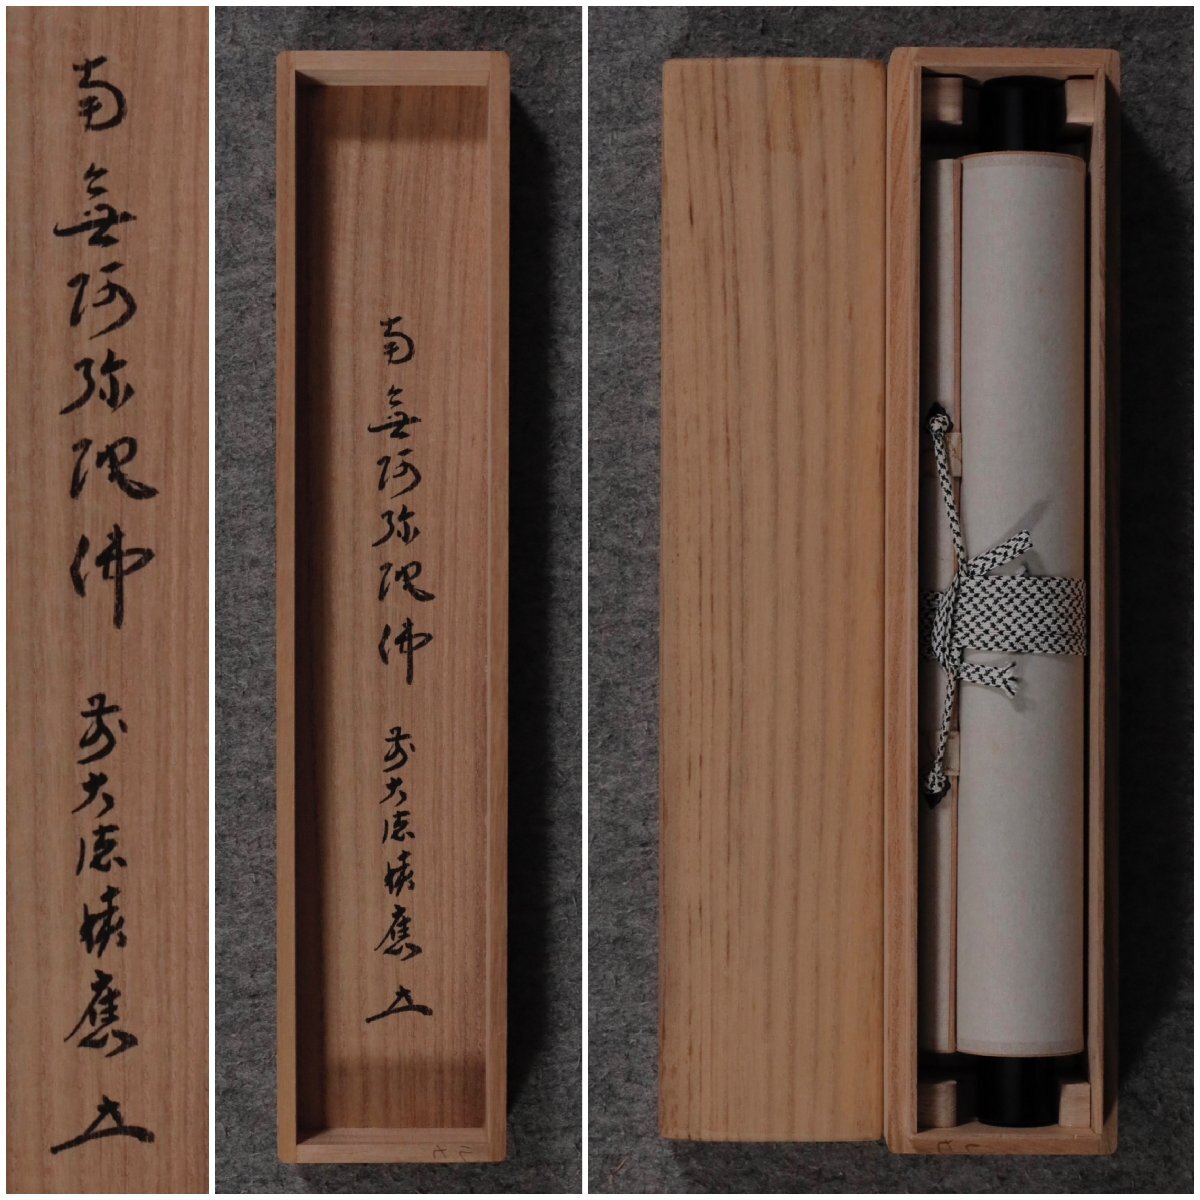 南無阿弥陀佛 前大徳積應
南無阿弥陀佛 前大徳積應